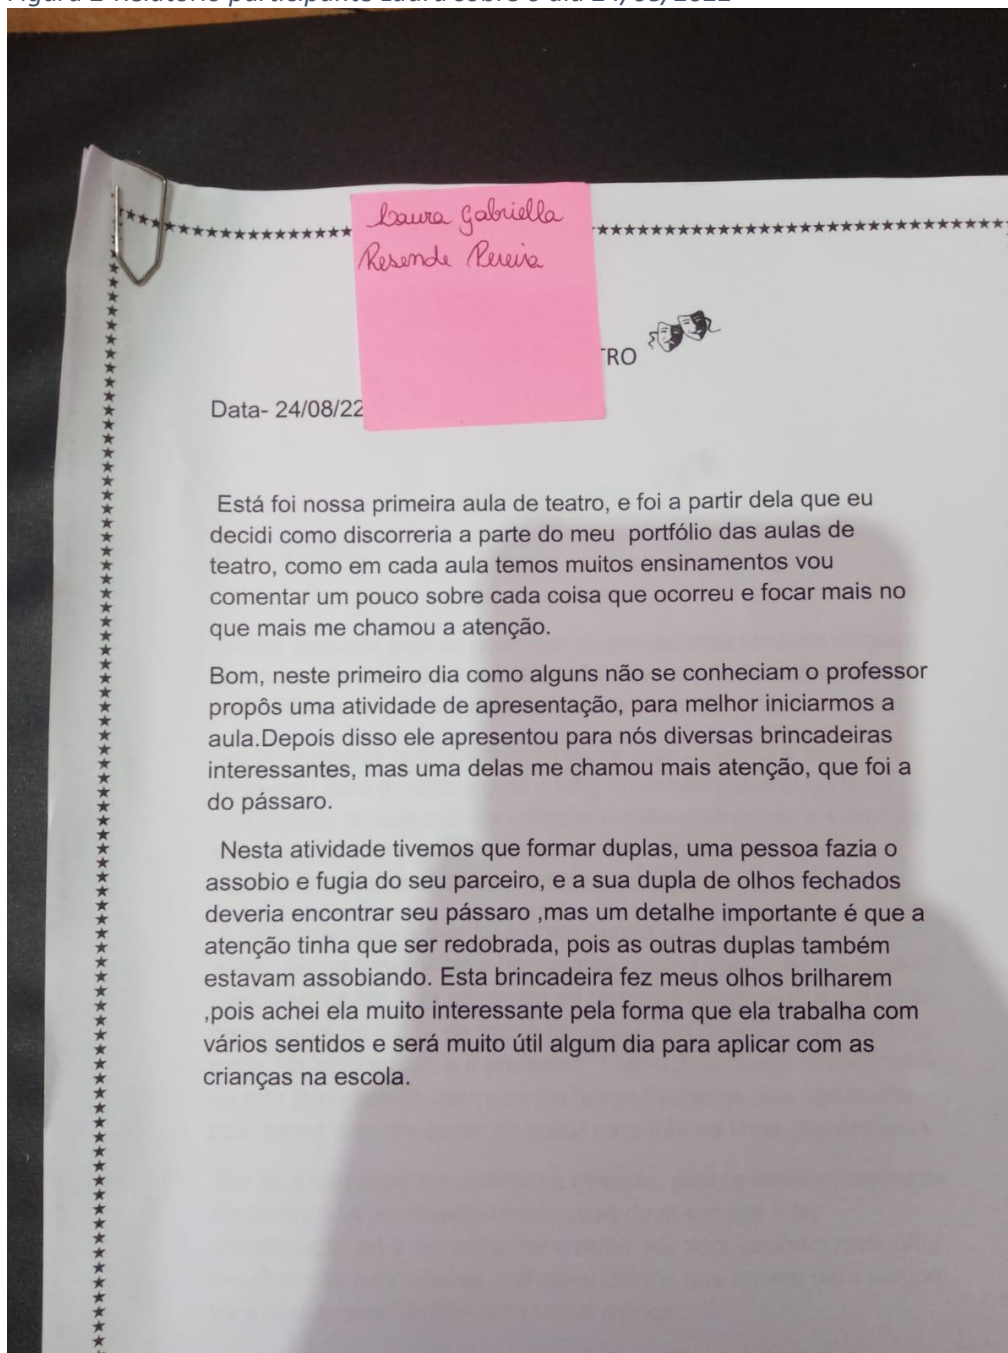 Laura Gabriella
Resende Pereira
TRO
Data- 24/08/22
Está foi nossa primeira aula de teatro, e foi a partir dela que eu
decidi como discorreria a parte do meu portfólio das aulas de
teatro, como em cada aula temos muitos ensinamentos vou
comentar um pouco sobre cada coisa que ocorreu e focar mais no
que mais me chamou a atenção.
Bom, neste primeiro dia como alguns não se conheciam o professor
propôs uma atividade de apresentação, para melhor iniciarmos a
aula.Depois disso ele apresentou para nós diversas brincadeiras
interessantes, mas uma delas me chamou mais atenção, que foi a
do pássaro.
Nesta atividade tivemos que formar duplas, uma pessoa fazia o
assobio e fugia do seu parceiro, e a sua dupla de olhos fechados
deveria encontrar seu pássaro ,mas um detalhe importante é que a
atenção tinha que ser redobrada, pois as outras duplas também
estavam assobiando. Esta brincadeira fez meus olhos brilharem
,pois achei ela muito interessante pela forma que ela trabalha com
vários sentidos e será muito útil algum dia para aplicar com as
crianças na escola.